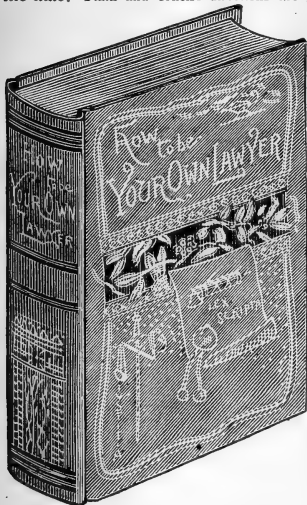 HOW
to be
YOUR OWN
LAWYER
How
to be
YOUR OWN LAWYER
OR
LEX
SCRIPTA